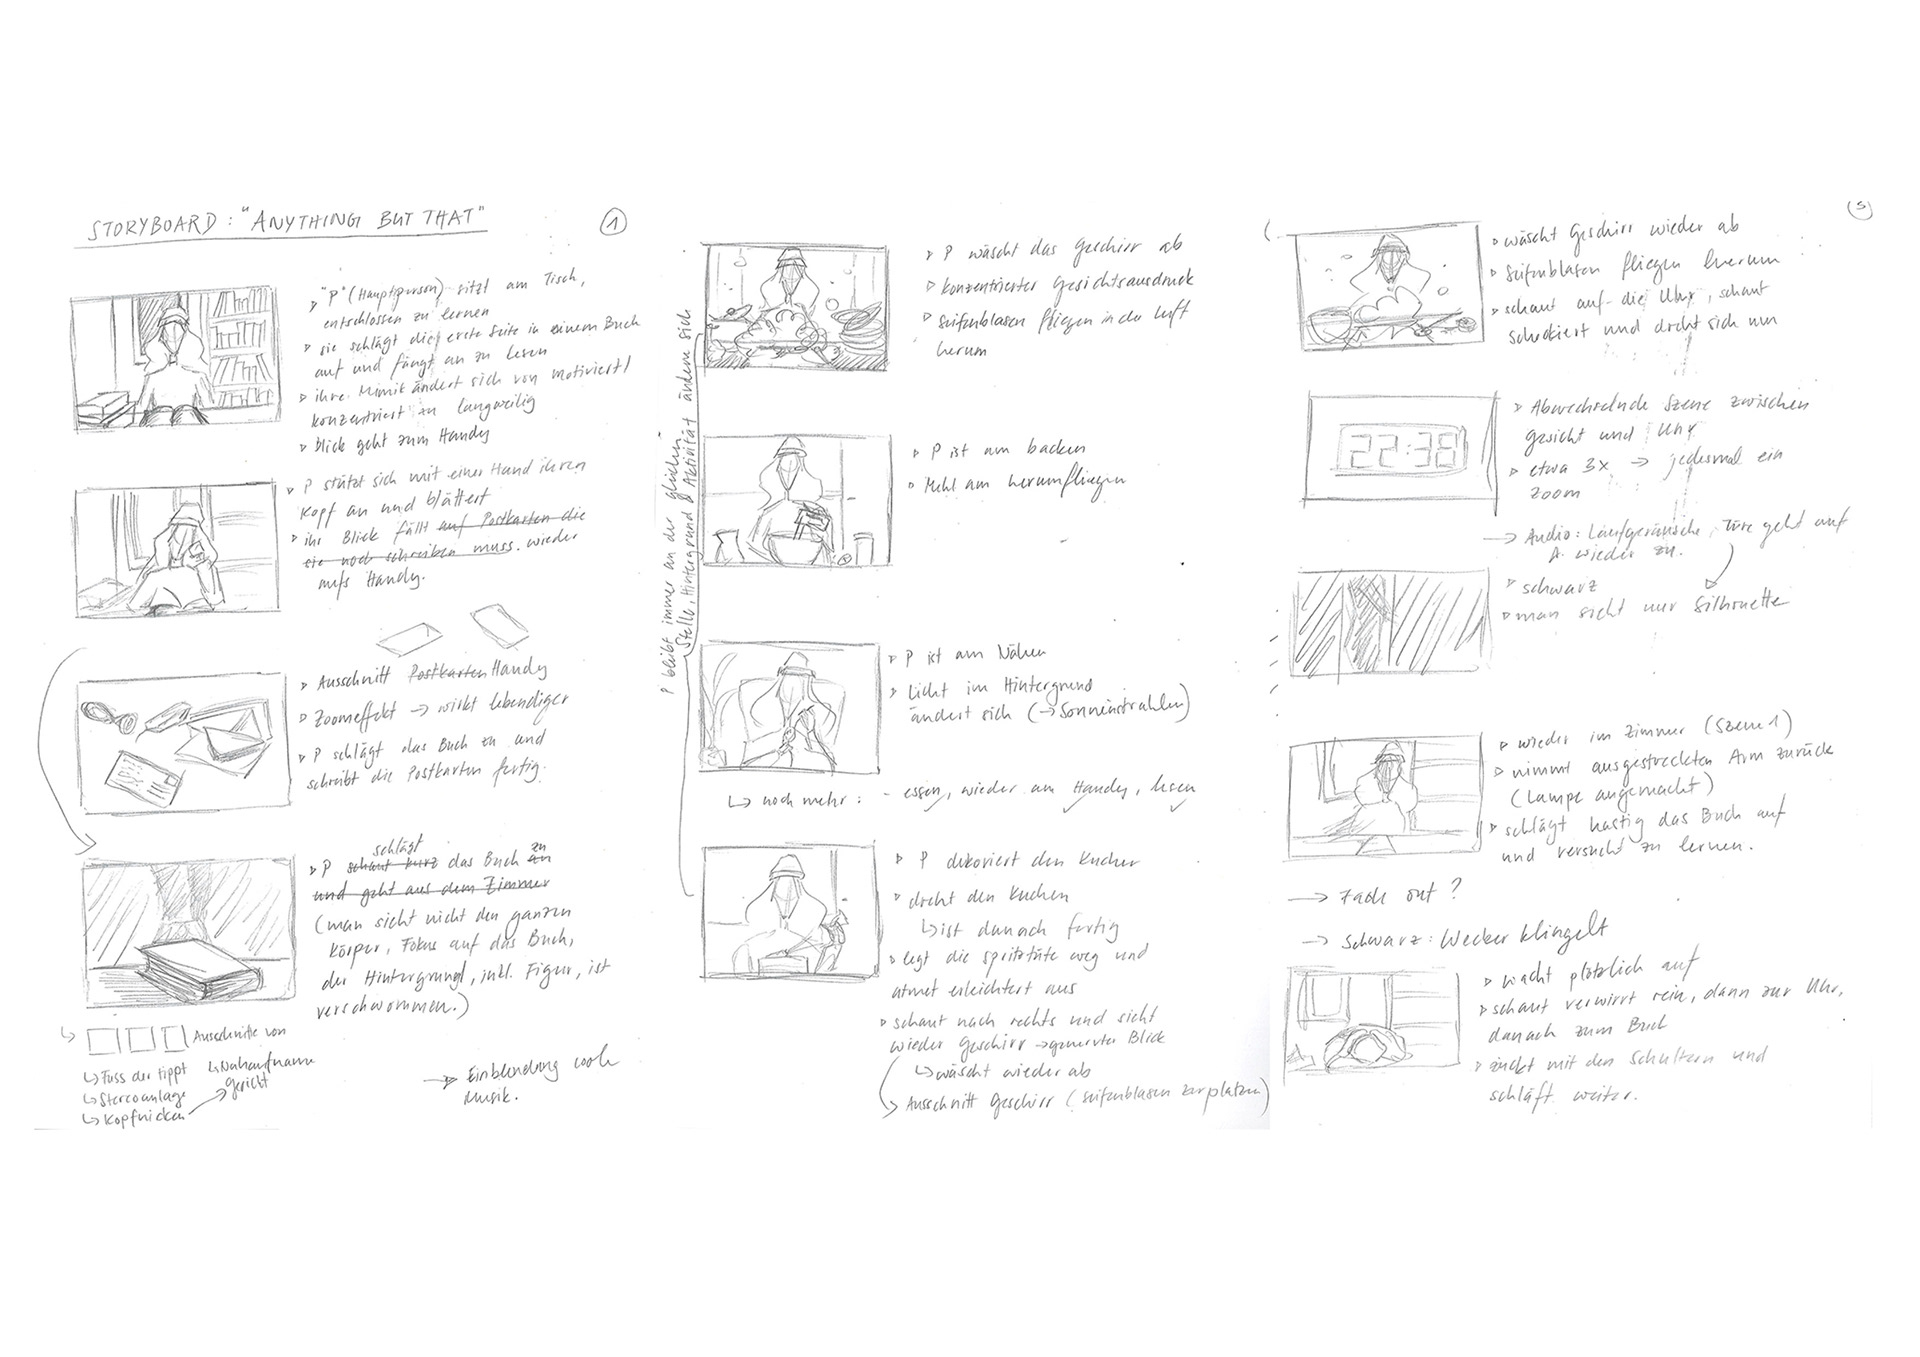 STORYBOARD: "ANYTHING BUT THAT"
1
"P" (Hauptperson) sitzt am Tisch,
entschlossen zu lernen
sie schlägt die erste Seite in einem Buch
auf und fängt an zu lesen
ihre Mimik ändert sich von motiviert/
konzentriert zu langweilig
Blick geht zum Handy
P stützt sich mit einer Hand ihren
Kopf an und blättert
ihr Blick fällt auf Postkarten die
sie noch schreiben muss. wieder
aufs Handy.
Ausschnitt Postkarten Handy
Zoomeffekt → wirkt lebendiger
P schlägt das Buch zu und
schreibt die Postkarten fertig.
schlägt zu
P schaut kurz das Buch an
und geht aus dem Zimmer
(man sieht nicht den ganzen
Körper, Fokus auf das Buch,
der Hintergrund, inkl. Figur, ist
verschwommen.)
Ausschnitte von
Fuss der tippt
Nahaufname
gesicht
Stereoanlage
Kopfnicken
→ Einblendung coole
Musik.
P bleibt immer an der gleichen
Stelle, Hintergrund & Aktivität ändern sich
P wäscht das Geschirr ab
konzentrierter Gesichtsausdruck
Seifenblasen fliegen in der Luft
herum
P ist am backen
Mehl am herumfliegen
P ist am Nähen
Licht im Hintergrund
ändert sich (→ Sonnenstrahlen)
noch mehr: - essen, wieder am Handy, lesen
P dekoriert den Kuchen
dreht den Kuchen
ist danach fertig
legt die spritztüte weg und
atmet erleichtert aus
schaut nach rechts und sieht
wieder Geschirr → genervter Blick
wäscht wieder ab
Ausschnitt Geschirr (Seifenblasen zerplatzen)
wäscht Geschirr wieder ab
Seifenblasen fliegen herum
schaut auf die Uhr, schaut
schockiert und dreht sich um
22:38
Abwechselnde Szene zwischen
Gesicht und Uhr
etwa 3x → jedesmal ein
Zoom
→ Audio: Laufgeräusche, Türe geht auf
& wieder zu.
schwarz
man sieht nur Silhouette
wieder im Zimmer (Szene 1)
nimmt ausgestreckten Arm zurück
(Lampe angemacht)
schlägt hastig das Buch auf
und versucht zu lernen.
→ Fade out?
→ Schwarz: Wecker klingelt
wacht plötzlich auf
schaut verwirrt rein, dann zur Uhr,
danach zum Buch
zuckt mit den Schultern und
schläft weiter.